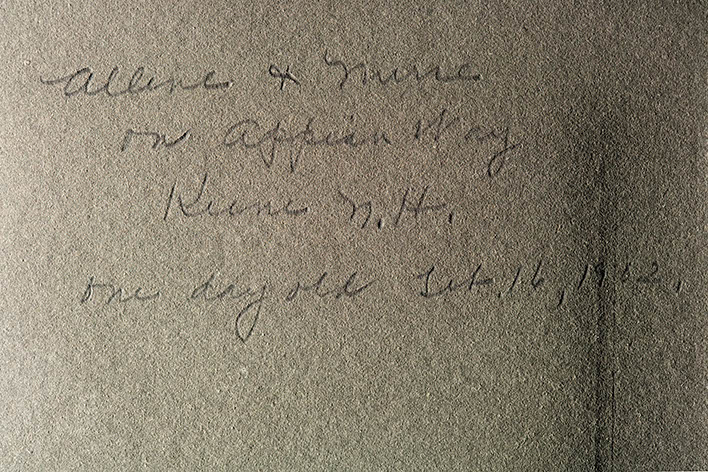 Allene & Nurse
on Appian Way
Keene N.H.
one day old Feb. 16, 1912.